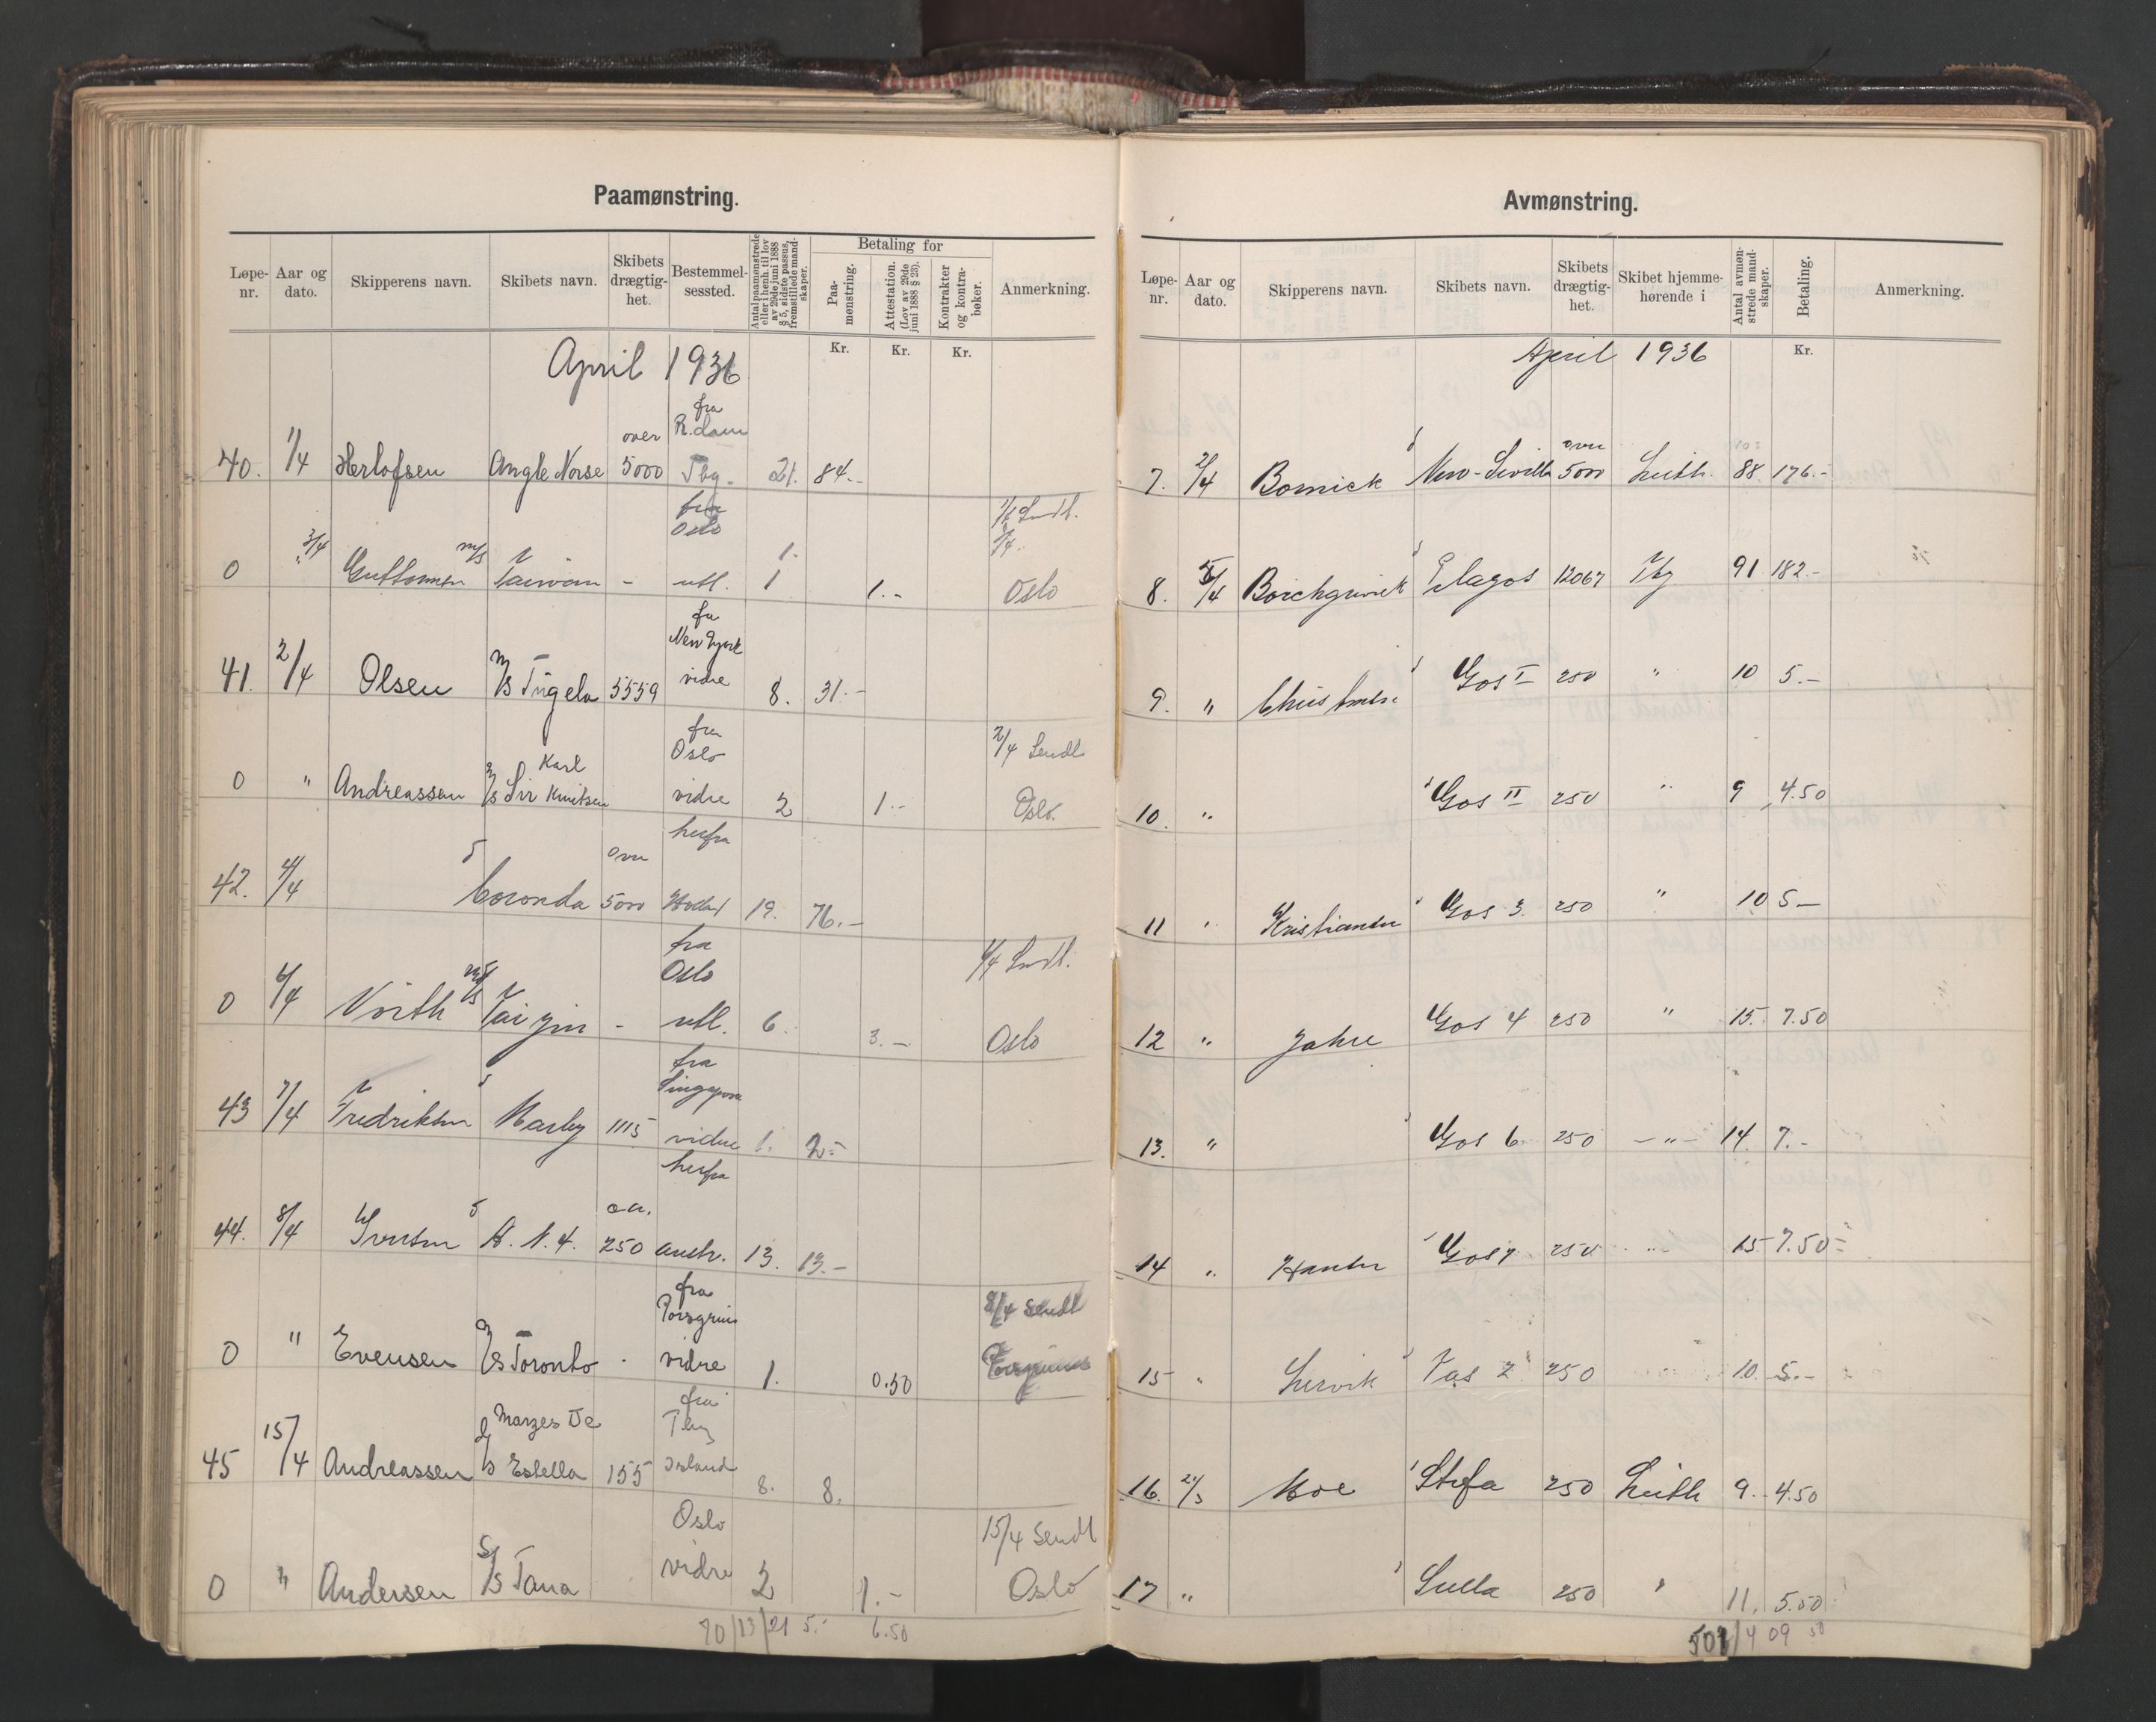 Paamønstring.
Løpe-nr. Aar og dato. Skipperens navn. Skibets navn. Skibets drægtig-het. Bestemmel-sessted. Antal paamønstrede eller i henh. til lov av 29de juni 1888 § 5, sidste passus, fremstillede mand-skaper. Betaling for Paa-mønstring. Attestation. (Lov av 29de juni 1888 § 23). Kontrakter og kontra-bøker. Anmerkning.
Kr. Kr. Kr.
April 1936
fra
over R.dam
40. 1/4 Herlofsen Angle Norse 5000 Tbg. 21. 84.-
fra
Oslo
3/4 m/s 1.
0 Guttormsen Taiwan - utl. 1 1.- Oslo
fra
New York
41. 2/4 Olsen m/s Tugela 5559 vidre 8. 31.-
fra
Karl Oslo 2/4 Sendt
0 " Andreassen m/s Sir Knutsen vidre 2 1.- Oslo.
herfra
over
42. 4/4 Coronda 5000 19. 76.-
fra
m/s Oslo
0 6/4 Tai Yin - utl. 6. 3.- Oslo
fra
43 7/4 Fredriksen Marby 1115 vidre 1. 2.-
herfra
44. 8/4 Iversen A. N. 4. 250 13. 13.-
fra
Porsgrunn 8/4 Sendt
0 " Evensen m/s Toronto - vidre 1. 0.50 Porsgrunn
fra
Marzes De Tbg
45 15/4 Andreassen d/s Estella 155 Island 8. 8.
Oslo 15/4 Sendt
0 " Andersen S/s Tana vidre 2 1.- Oslo
70/13/21 5.- 6.50
Avmønstring.
Løpe-nr. Aar og dato. Skipperens navn. Skibets navn. Skibets drægtig-het. Skibet hjemme-hørende i Antal avmøn-strede mand-skaper. Betaling. Anmerkning.
Kr.
April 1936
over
7. 2/4 Bornick New-Sevilla 5000 Leith. 88 176.-
8. 5/4 Borchgrevink Pelagos 12067 Tbg 91 182.-
9. " Christensen Gos I 250 " 10 5.-
10. " Gos II 250 " 9 4.50
11 " Kristiansen Gos 3. 250 " 10 5-
12 " Jahre Gos 4 250 " 15. 7.50
13. " Gos 6. 250 -"- 14. 7.-
14 " Hansen Gos 7 250 " 15 7.50
15 " Lervik Tas 2 250 10. 5.-
16. Moe Stefa 250 Leith 9. 4.50
17 " Sulla 250 " 11. 5.50
409 50